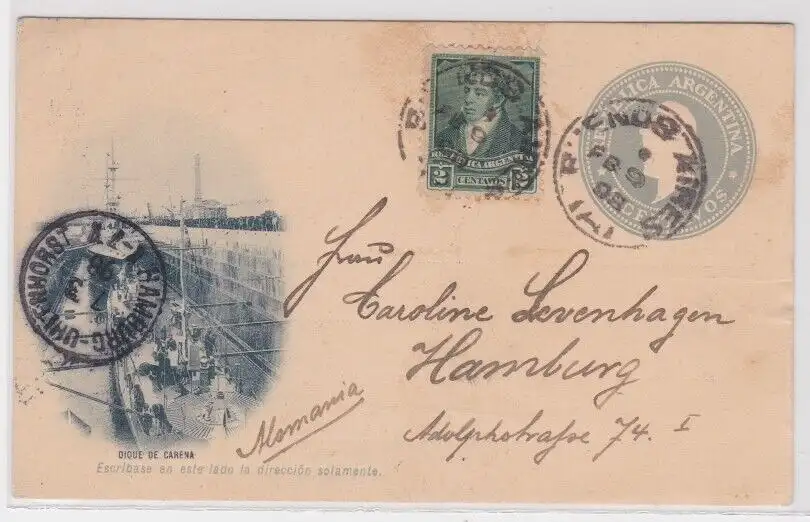 2 CENTAVOS 2
REPUBLICA ARGENTINA
BUENOS AIRES
9
98
HAMBURG-UHLENHORST
98
Frau
Caroline Levenhagen
Hamburg
Adolphstraße 74. I
Alemania
DIQUE DE CARENA
Escríbase en este lado la dirección solamente.